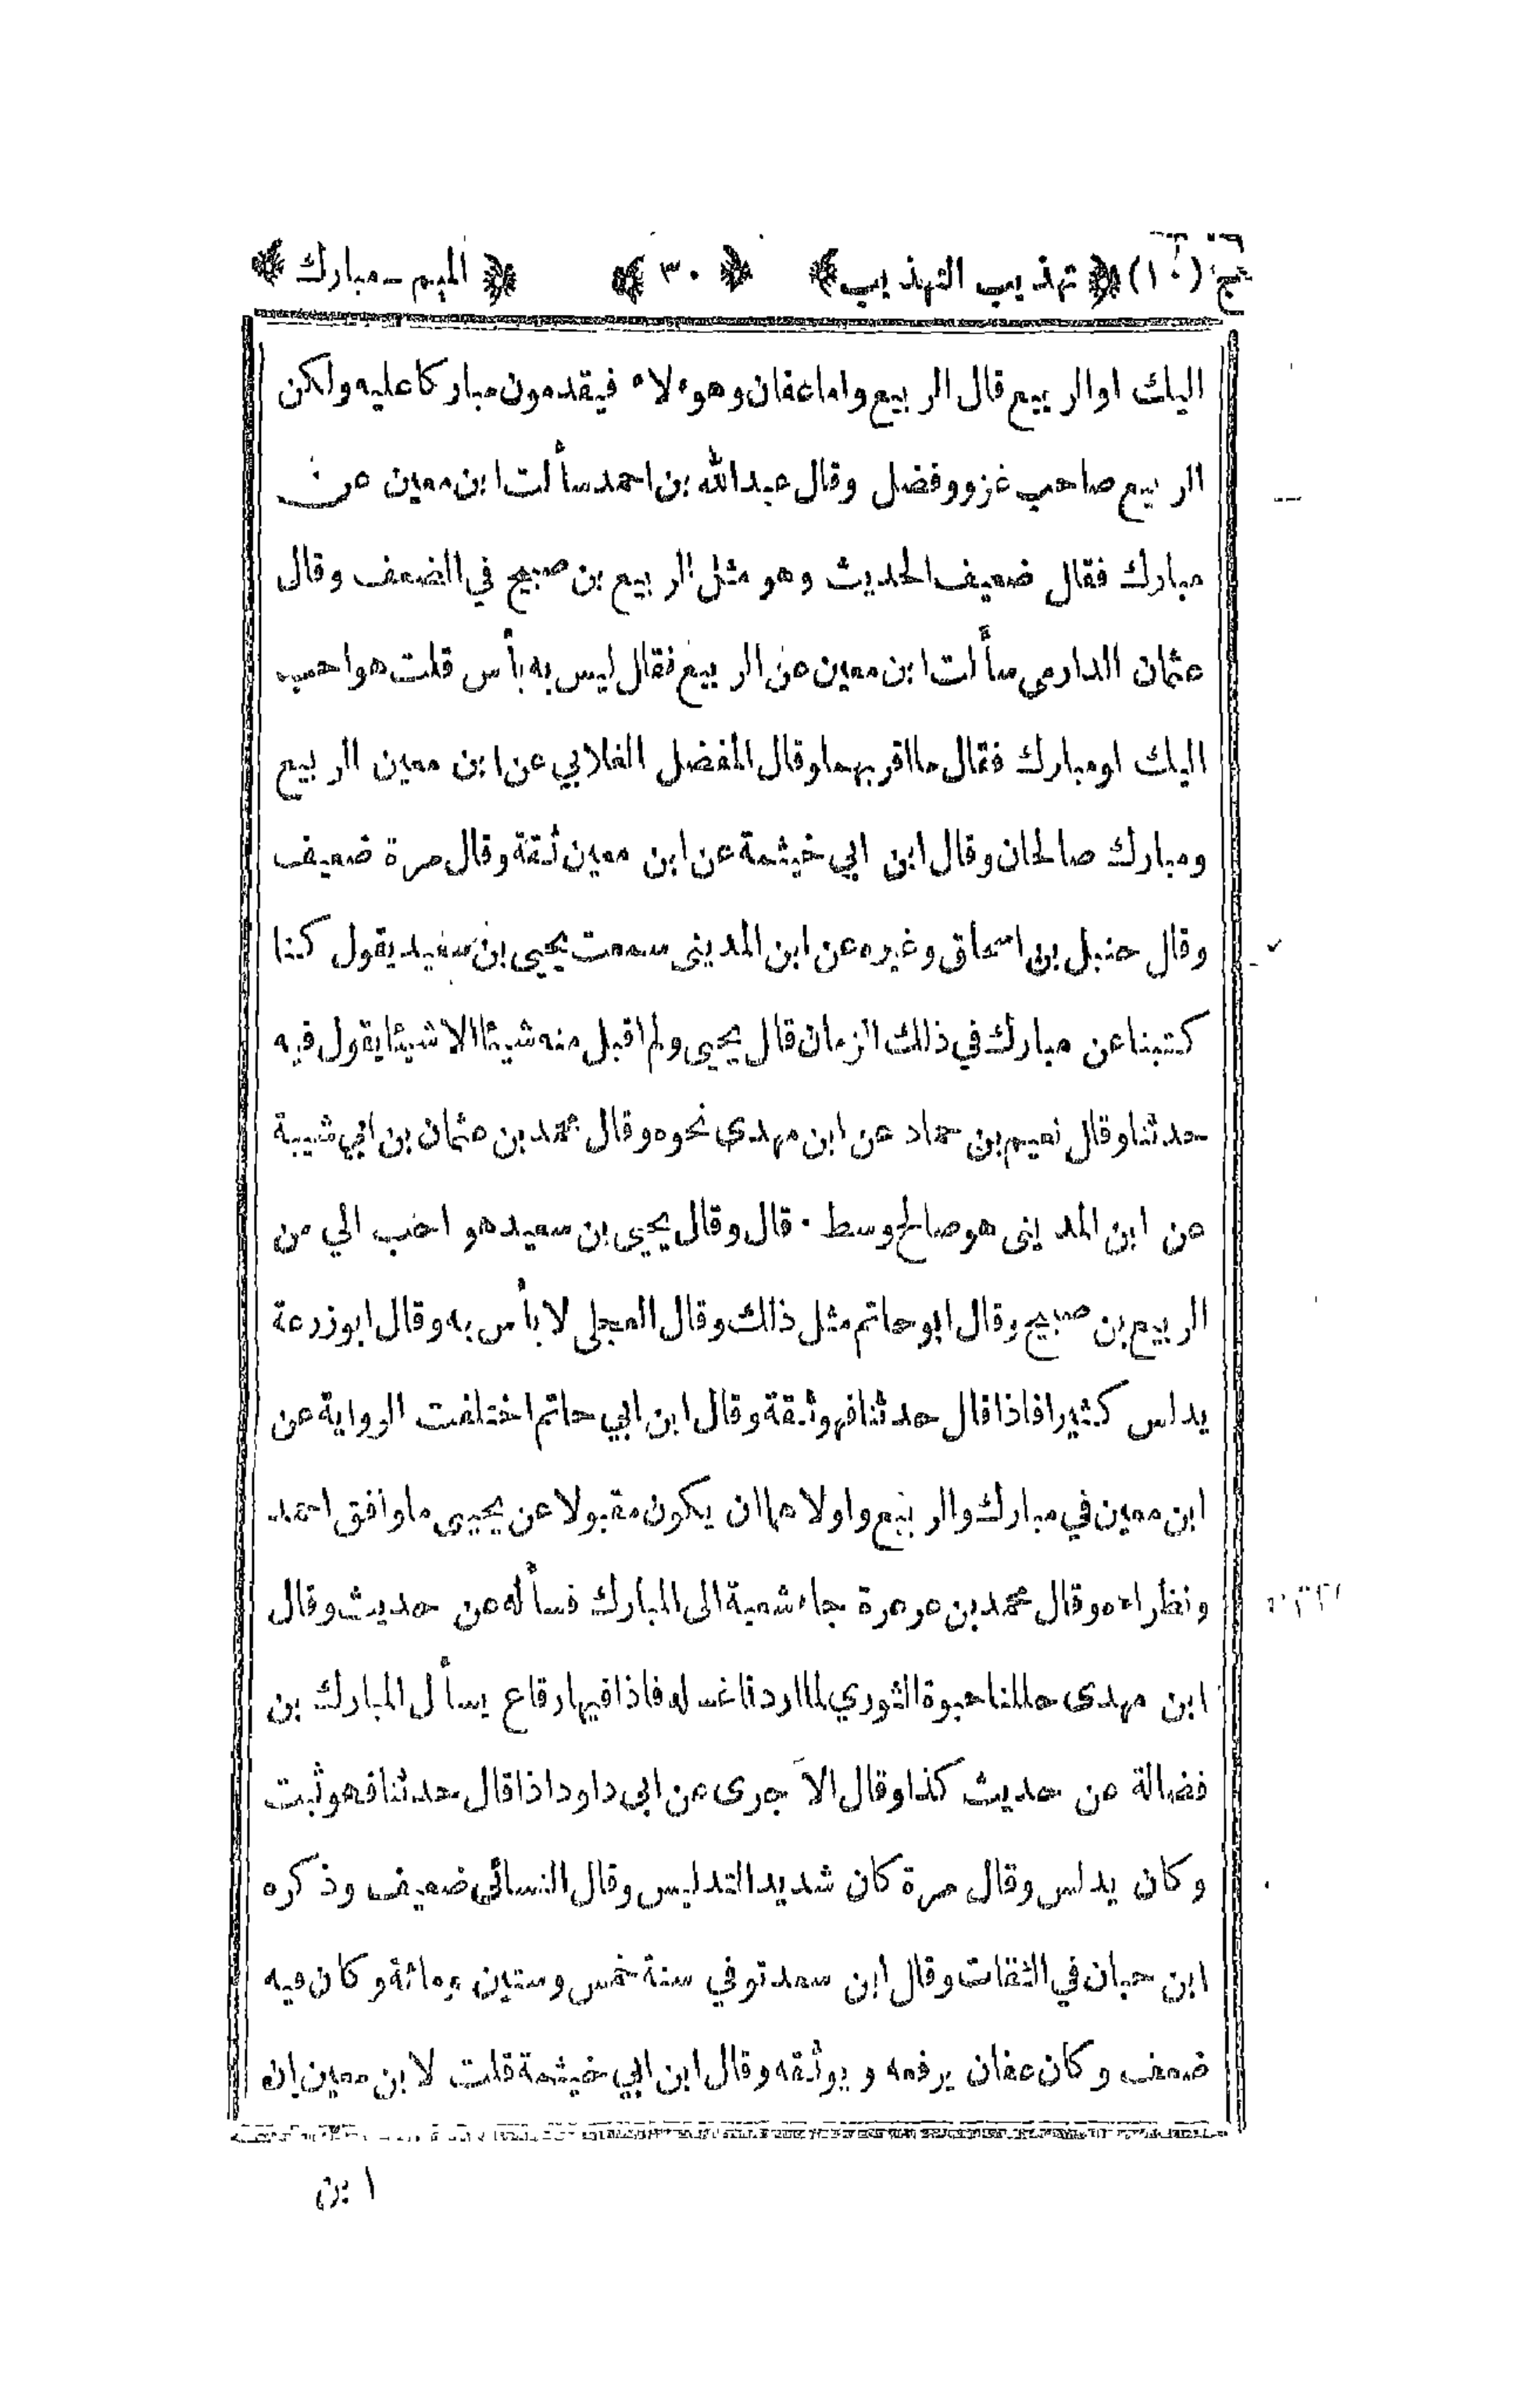 ج (١٠) ﴿ تهذيب التهذيب ﴾ ﴿ ٣٠ ﴾ ﴿ الميم - مبارك ﴾
اليك او الربيع قال الربيع واما عفان وهوءلاء فيقدمون مباركا عليه ولكن
الربيع صاحب غزو وفضل وقال عبدالله بن احمد سألت ابن معين عن
مبارك فقال ضعيف الحديث وهو مثل الربيع بن صبيح في الضعف وقال
عثمان الدارمي سألت ابن معين عن الربيع فقال ليس به بأس قلت هو احب
اليك او مبارك فقال ما اقربهما وقال المفضل الغلابي عن ابن معين الربيع
ومبارك صالحان وقال ابن ابي خيثمة عن ابن معين ثقة وقال مرة ضعيف
وقال حنبل بن اسحاق وغيره عن ابن المديني سمعت يحيى بن سعيد يقول كنا
كتبنا عن مبارك في ذلك الزمان قال يحيى ولم اقبل منه شيئا الا شيئا يقول فيه
حدثنا وقال نعيم بن حماد عن ابن مهدى نحوه وقال محمد بن عثمان بن ابي شيبة
عن ابن المديني هو صالح وسط . قال وقال يحيى بن سعيد هو احب الي من
الربيع بن صبيح وقال ابو حاتم مثل ذلك وقال العجلي لا بأس به وقال ابو زرعة
يدلس كثيرا فاذا قال حدثنا فهو ثقة وقال ابن ابي حاتم اختلفت الرواية عن
ابن معين في مبارك والربيع واولاهما ان يكون مقبولا عن يحيى ما وافق احمد
ونظراءه وقال محمد بن عرعرة جاء شعبة الى المبارك فسأله عن حديث وقال
ابن مهدى حللنا حبوة الثوري لما اردنا غسله فاذا فيها رقاع يسأل المبارك بن
فضالة عن حديث كذا وقال الآجرى عن ابى داود اذا قال حدثنا فهو ثبت
وكان يدلس وقال مرة كان شديد التدليس وقال النسائى ضعيف وذكره
ابن حبان في الثقات وقال ابن سعد توفي سنة خمس وستين ومائة وكان فيه
ضعف وكان عفان يرفعه ويوثقه وقال ابن ابي خيثمة قلت لابن معين ان
ابن